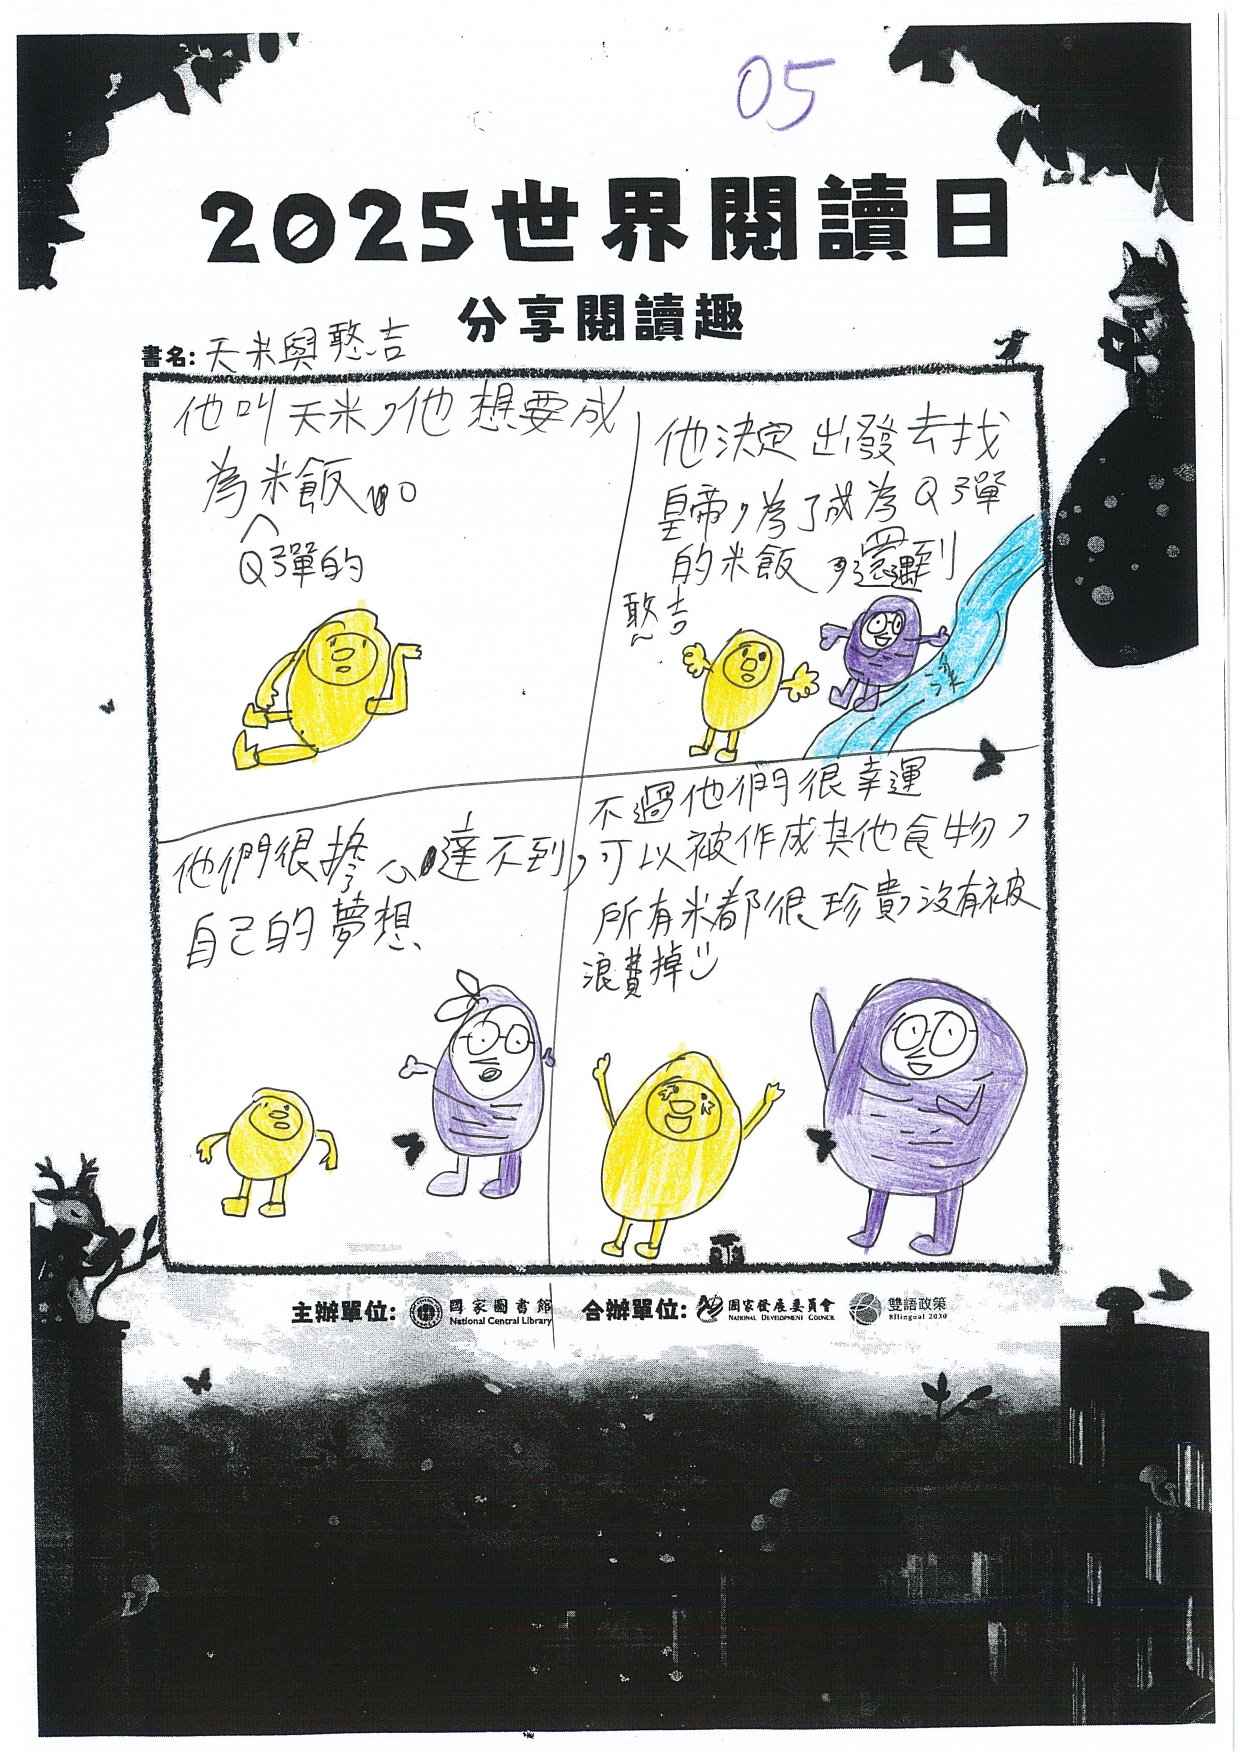 05
2025世界閱讀日
分享閱讀趣
書名: 天米與憨吉
他叫天米,他想要成
為米飯。
Q彈的
他決定出發去找
皇帝,為了成為Q彈
的米飯,還遇到
憨吉
深
他們很擔心達不到
自己的夢想、
不過他們很幸運,
可以被作成其他食物,
所有米都很珍貴,沒有被
浪費掉
主辦單位: 國家圖書館
National Central Library
合辦單位: 國家發展委員會
NATIONAL DEVELOPMENT COUNCIL
雙語政策
Bilingual 2030